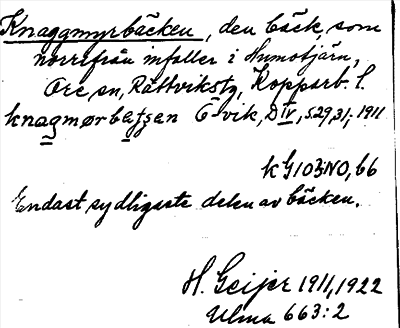 Knaggmyrbäcken, den bäck, som
norrifrån infaller i Humotjärn,
Ore sn, Rättvikstg, Kopparb. l.
knagmørbatsen E-vik, D IV, s. 29, 31, 1911
k G 103:NO, 66
Endast sydligaste delen av bäcken.
H. Geijer 1911, 1922
Ulma 663:2